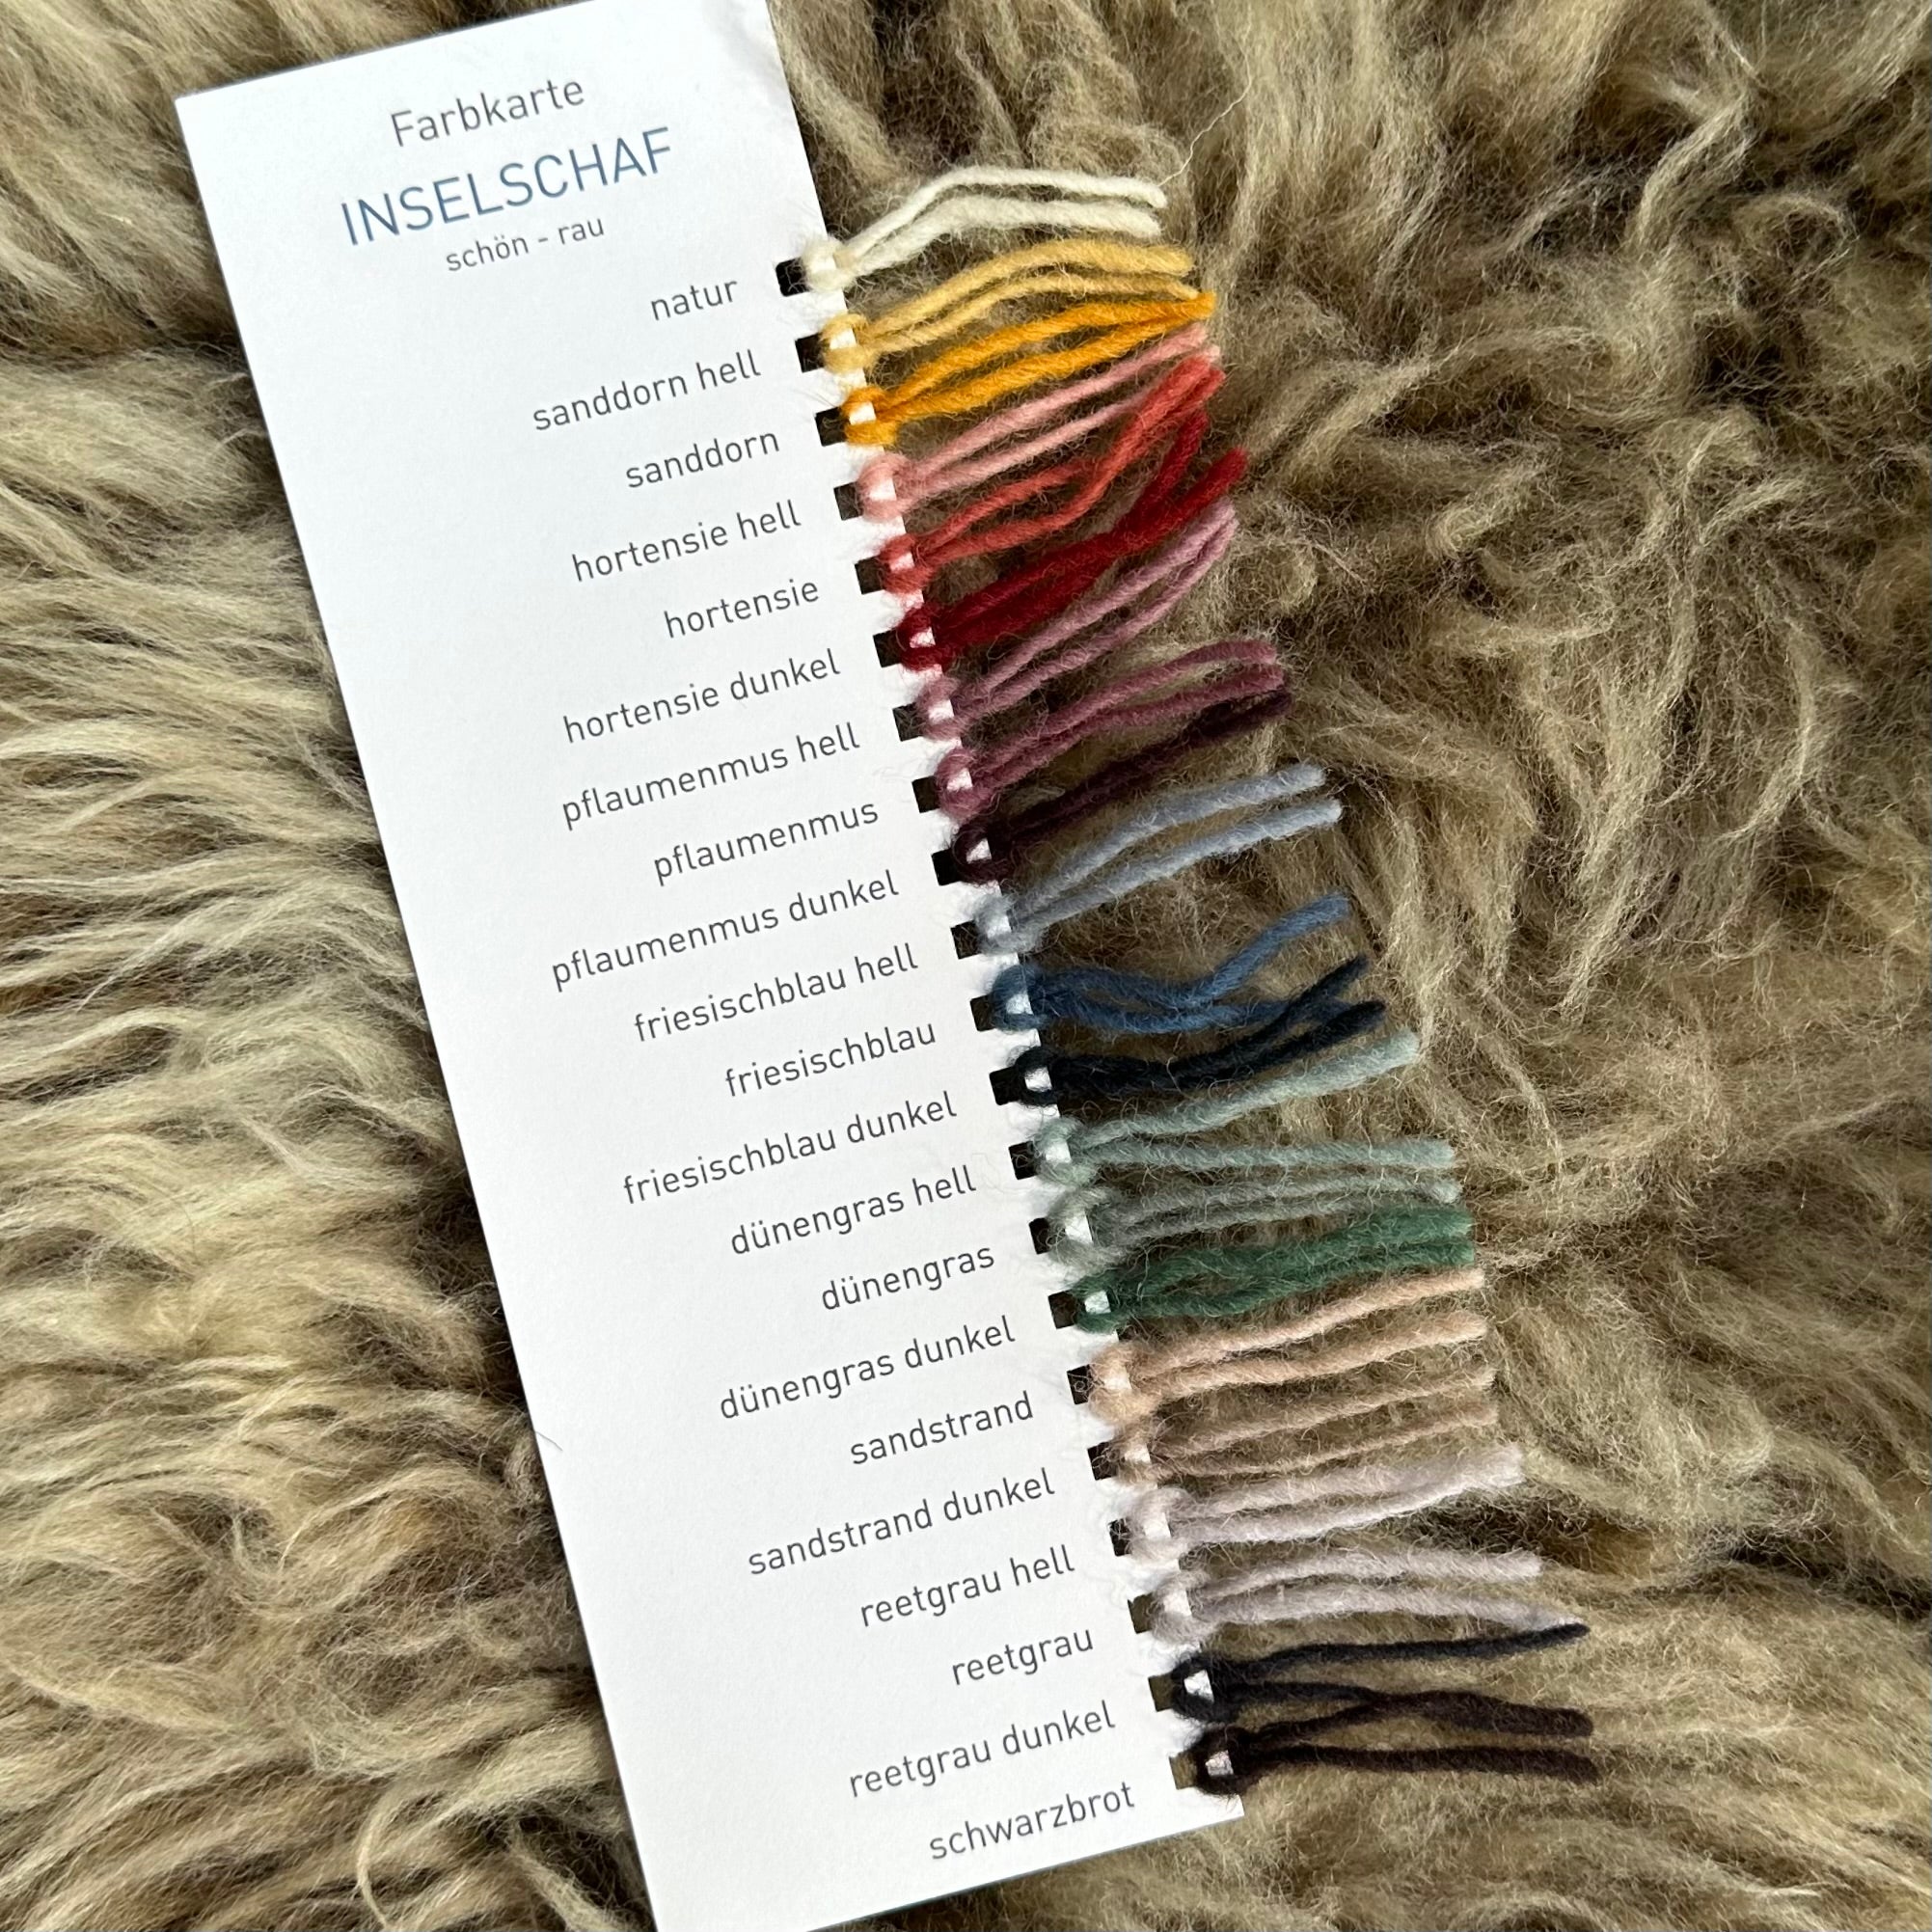 Farbkarte
INSELSCHAF
schön - rau
natur
sanddorn hell
sanddorn
hortensie hell
hortensie
hortensie dunkel
pflaumenmus hell
pflaumenmus
pflaumenmus dunkel
friesischblau hell
friesischblau
friesischblau dunkel
dünengras hell
dünengras
dünengras dunkel
sandstrand
sandstrand dunkel
reetgrau hell
reetgrau
reetgrau dunkel
schwarzbrot